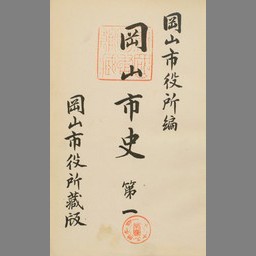 岡山市役所編
岡山市史 第一
岡山市役所藏版